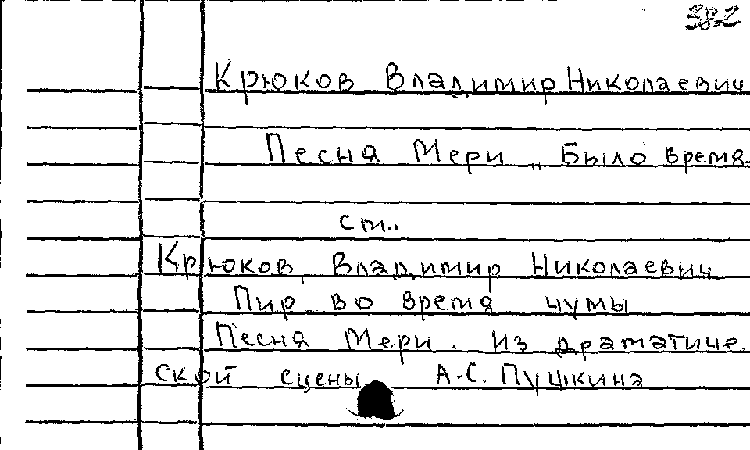 382
Крюков Владимир Николаевич
Песня Мери „Было время
ст..
Крюков, Владимир Николаевич
Пир во время чумы
Песня Мери. Из драматиче
ской сцены А.С. Пушкина